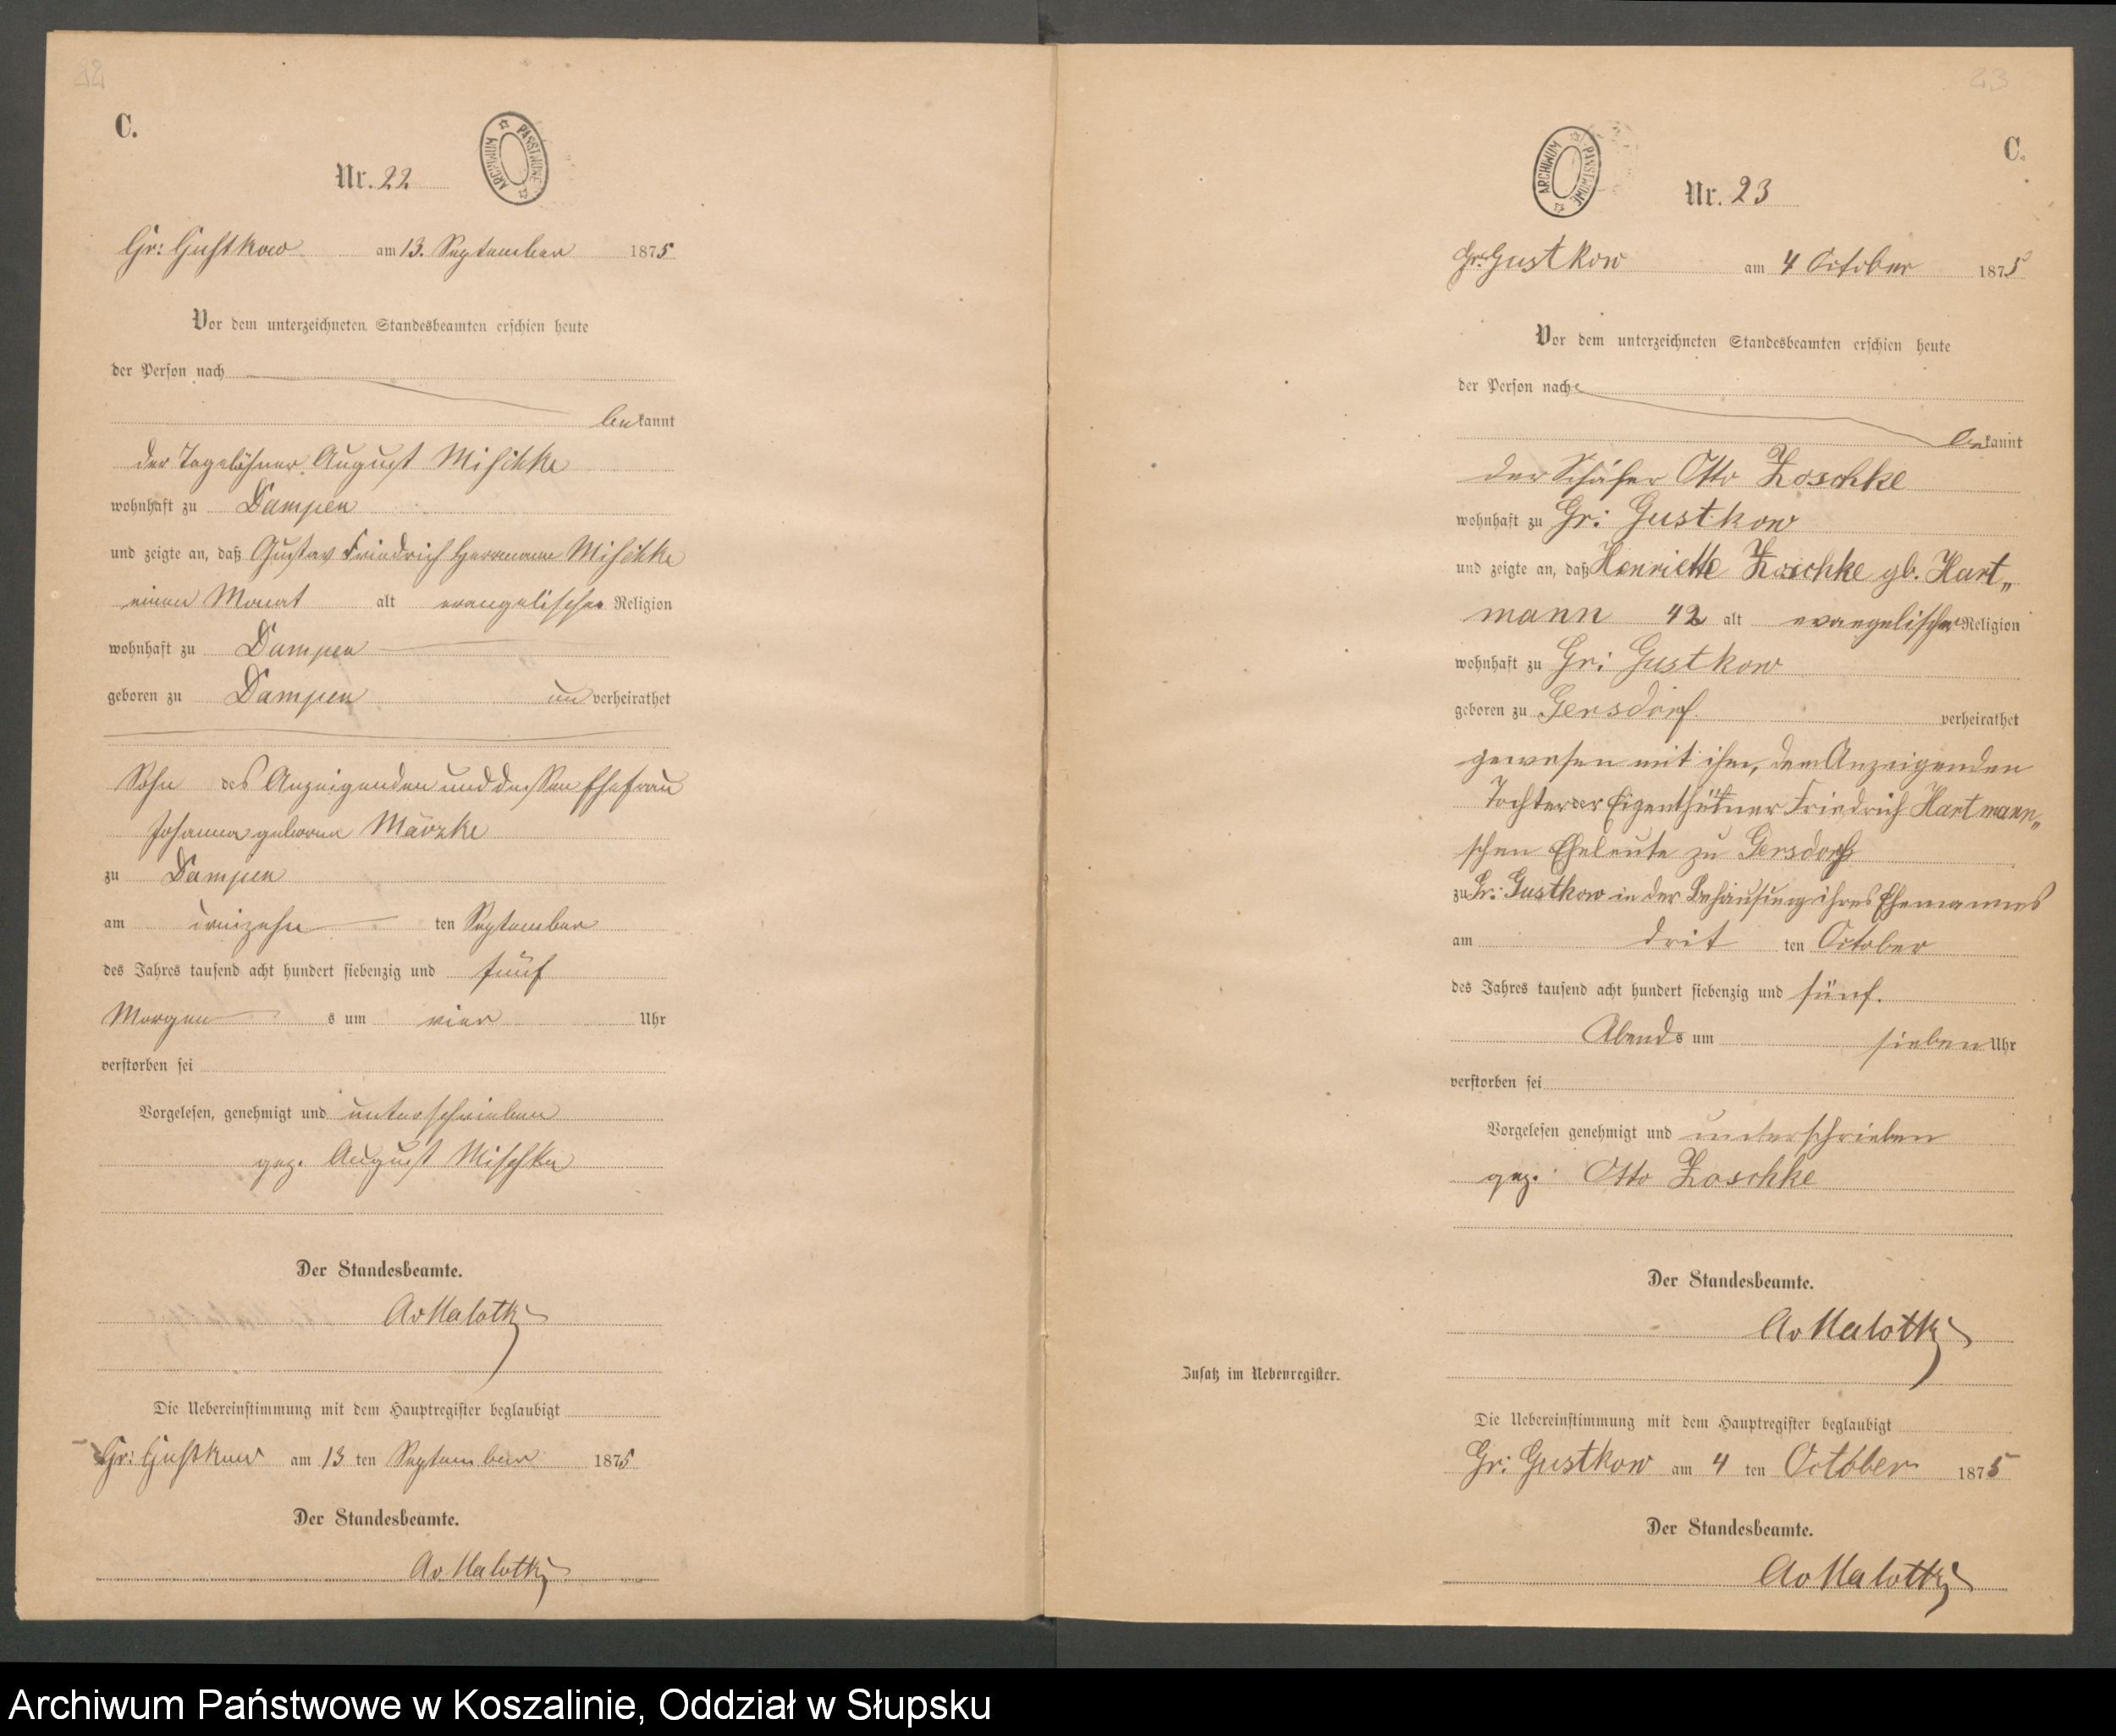 22
C.
ARCHIWUM PAŃSTWOWE
Nr. 22
Gr: Gustkow am 13. September 1875
Vor dem unterzeichneten Standesbeamten erschien heute
der Person nach
bekannt
der Tagelöhner August Mischke
wohnhaft zu Dampen
und zeigte an, daß Gustav Friedrich Herrmann Mischke
einen Monat alt evangelischer Religion
wohnhaft zu Dampen
geboren zu Dampen unverheirathet
Sohn des Anzeigenden und dessen Ehefrau
Johanna geborene
zu Dampen
am dreizehn ten September
des Jahres tausend acht hundert siebenzig und fünf
Morgens um vier Uhr
verstorben sei
Vorgelesen, genehmigt und unterschrieben
gez. August Mischke
Der Standesbeamte.
AvMalotky
Die Uebereinstimmung mit dem Hauptregister beglaubigt
Gr: Gustkow am 13 ten September 1875
Der Standesbeamte.
Av Malotky
23
C.
ARCHIWUM PAŃSTWOWE
Nr. 23
Gr: Gustkow am 4 October 1875
Vor dem unterzeichneten Standesbeamten erschien heute
der Person nach
bekannt
der Schäfer Otto Zoschke
wohnhaft zu Gr: Gustkow
und zeigte an, daß Henriette Zoschke gb. Hart„
mann 42 alt evangelischer Religion
wohnhaft zu Gr: Gustkow
geboren zu Gersdorf verheirathet
gewesen mit ihm, dem Anzeigenden
Tochter der Eigenthümer Friedrich Hartmann„
schen Eheleute zu Gersdorf
zu Gr: Gustkow in der Behausung ihres Ehemannes
am drit ten October
des Jahres tausend acht hundert siebenzig und fünf.
Abends um sieben Uhr
verstorben sei
Vorgelesen genehmigt und unterschrieben
gez. Otto Zoschke
Der Standesbeamte.
Av Malotky
Zusatz im Nebenregister.
Die Uebereinstimmung mit dem Hauptregister beglaubigt
Gr: Gustkow am 4 ten October 1875
Der Standesbeamte.
Av Malotky
Archiwum Państwowe w Koszalinie, Oddział w Słupsku